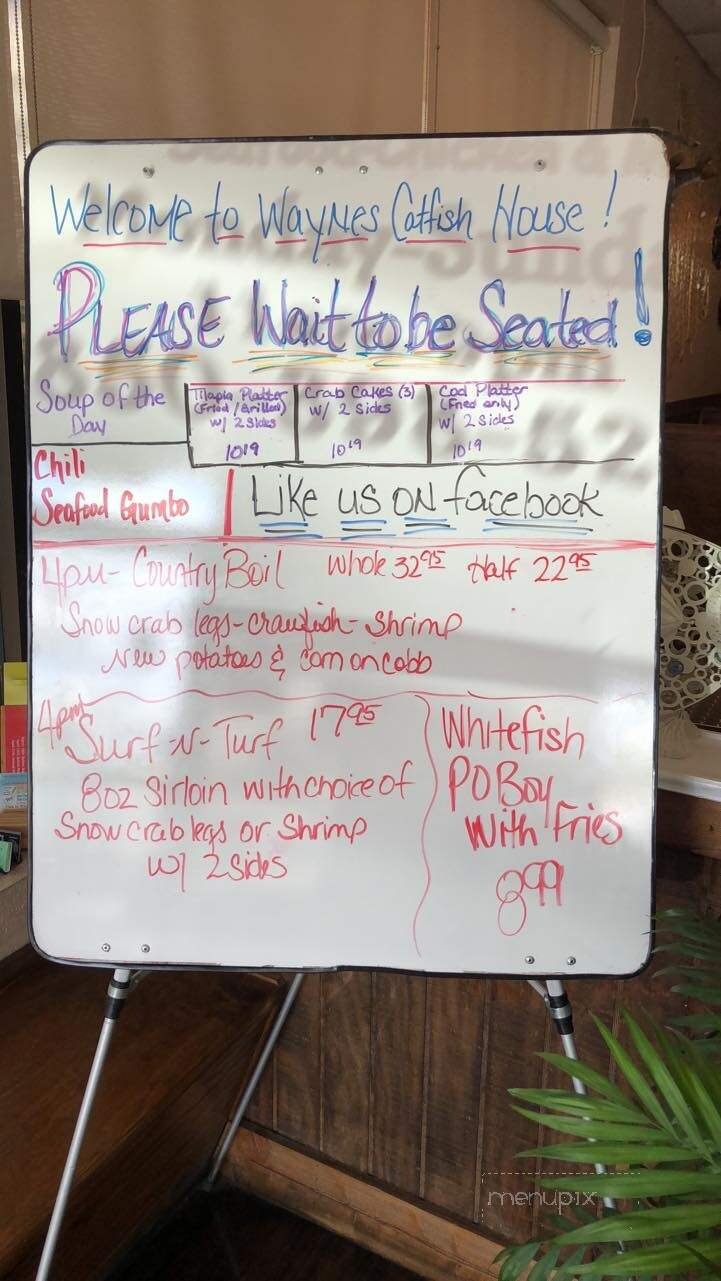 Welcome to Waynes Catfish House!
PLEASE Wait to be Seated!
Soup of the
Day
Tilapia Platter
(Fried/Grilled)
w/ 2 sides
10.19
Crab Cakes (3)
w/ 2 Sides
10.19
Cod Platter
(Fried only)
w/ 2 sides
10.19
Chili
Seafood Gumbo
Like us on facebook
4pm- Country Boil Whole 32.95 Half 22.95
Snow crab legs-crawfish-shrimp
New potatoes & corn on cobb
4pm
Surf-N-Turf 17.95
8oz Sirloin with choice of
Snow crab legs or Shrimp
w/ 2 sides
Whitefish
PO Boy
With Fries
8.99
menupix